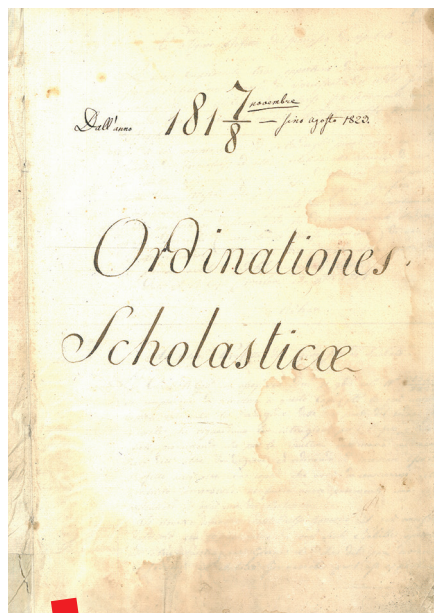 Dall'anno 181 7/8 novembre — sino agosto 1823.
Ordinationes
Scholasticæ